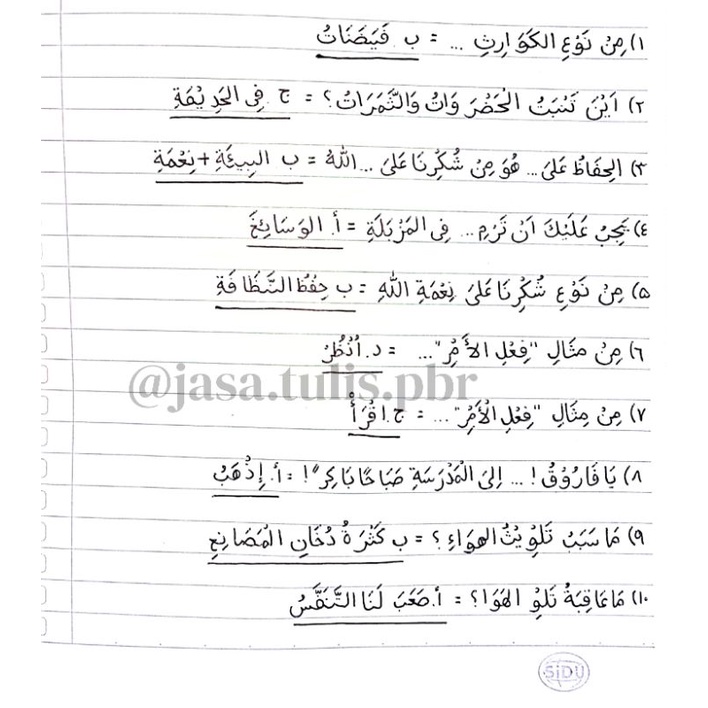 ١) مِنْ نَوْعِ الكَوَارِثِ ... = ب. فَيَضَنَاتُ
٢) اَيْنَ تَنْبَتُ الْحَضْرَ وَاتُ وَالثَّمَرَاتُ؟ = ج. فِي الحَدِيْقَةِ
٣) الحِفَاظُ عَلىَ... هُوَ مِنْ شُكْرِنَا عَلىَ ...اللهُ = ب البِيئَةِ + نِعْمَةِ
٤) يَجِبُ عَلَيْكَ اَنْ تَرَمِ... فِي المَزْبَلَةِ = أ. الوَسَائِخَ
٥) مِنْ نَوْعِ شُكْرِنَا عَلىَ نِعْمَةِ اللهِ = ب حِفْظُ النَّظَافَةِ
٦) مِنْ مثَالِ "فِعْلِ الأَمْرِ" ... = د. اُنْظُرْ
٧) مِنْ مِثَالِ "فِعْلِ الْأَمْرِ" ... = ج. اقْرَأْ
٨) يَا فَارُوْقُ! ... اِلىَ الْمَدْرَسَةِ صَبَاحًا بَاكِرًا! = أ. إِذْهَبْ
٩) مَا سَبَبُ تَلْوِيْثُ الهوَاءِ؟ = ب كَثْرَةُ دُخَانِ المَصَانِعِ
١٠) مَا عَاقِبَةُ تَلْوِ الهَوَا؟ = أ. صَعَبَ لَنَا التَّنَفُّسُ
@jasa.tulis.pbr
SiDU